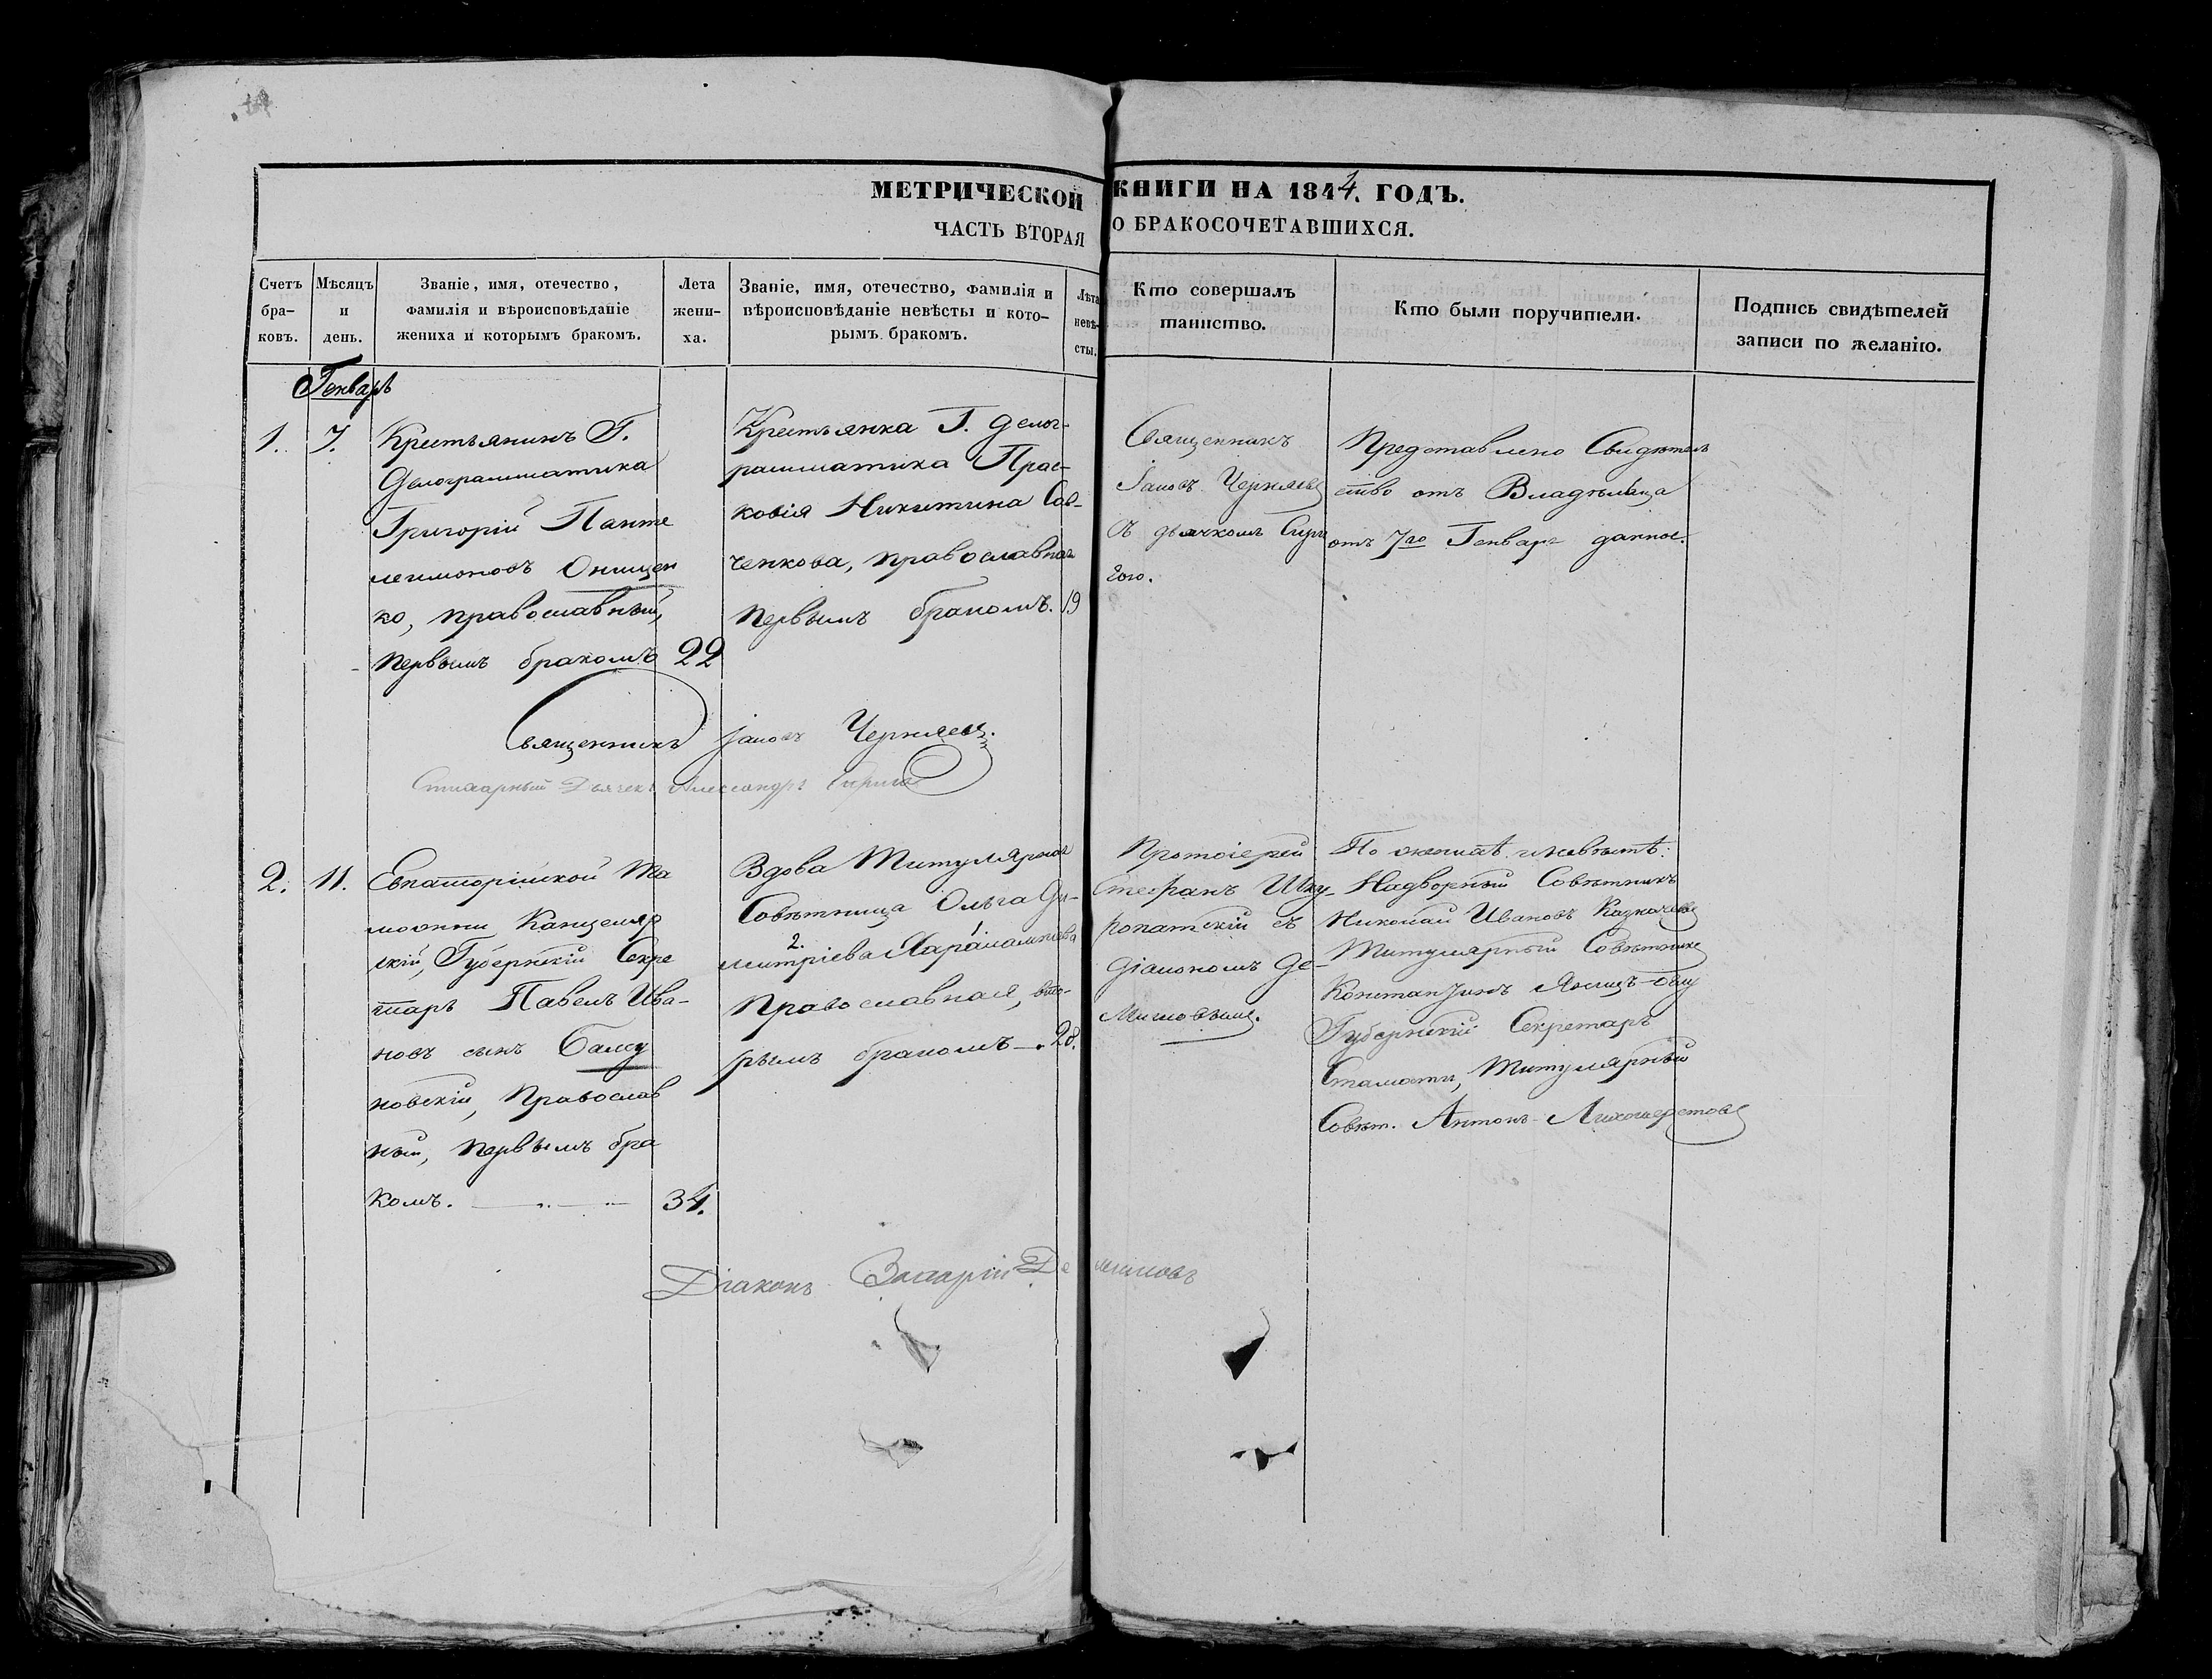 МЕТРИЧЕСКОЙ КНИГИ НА 1844. ГОДЪ.
ЧАСТЬ ВТОРАЯ О БРАКОСОЧЕТАВШИХСЯ.
Счетъ бра-ковъ.
Мѣсяцъ и день.
Званіе, имя, отечество,
фамилія и вѣроисповѣданіе
жениха и которымъ бракомъ.
Лета
жени-
ха.
Званіе, имя, отечество, фамилія и
вѣроисповѣданіе невѣсты и кото-
рымъ бракомъ.
Лѣта
невѣ-
сты.
Кто совершалъ
таинство.
Кто были поручители.
Подпись свидѣтелей
записи по желанію.
Генварь
1. 7.
Крестьянинъ Г.
Делограмматика
Григорій Панте
леимоновъ Онищен
ко, православный,
первымъ бракомъ 22
Крестьянка Г. Делог-
рамматика Прас-
ковія Никитина Сав-
ченкова, православная
первымъ бракомъ. 19
Священникъ
Іаковъ Черняевъ
съ дьячкомъ
Представлено Свидѣтель
ство отъ Владѣльца
отъ 7го Генваря данное.
Священникъ Іаковъ Черняевъ.
Стихарный Дьячекъ Александръ
2. 11.
Евпаторійской Та
можни Канцеляр
скій, Губернскій Секре
тарь Павелъ Ива-
новъ сынъ
новскій, Православ
ный, первымъ бра
комъ. 34.
Вдова Титулярная
Совѣтница Ольга Ди-
2.
митріева
Православная, вто-
рымъ бракомъ 28.
Протоіерей
Стефанъ Шку
ропатскій съ
Діакономъ Де-
По женихѣ и невѣстѣ:
Надворный Совѣтникъ
Николай Ивановъ Казначеевъ
Титулярный Совѣтникъ
Губернскій Секретарь
Стамати, Титулярный
Совѣт. Антонъ Лихошерстовъ
Діаконъ Захарій